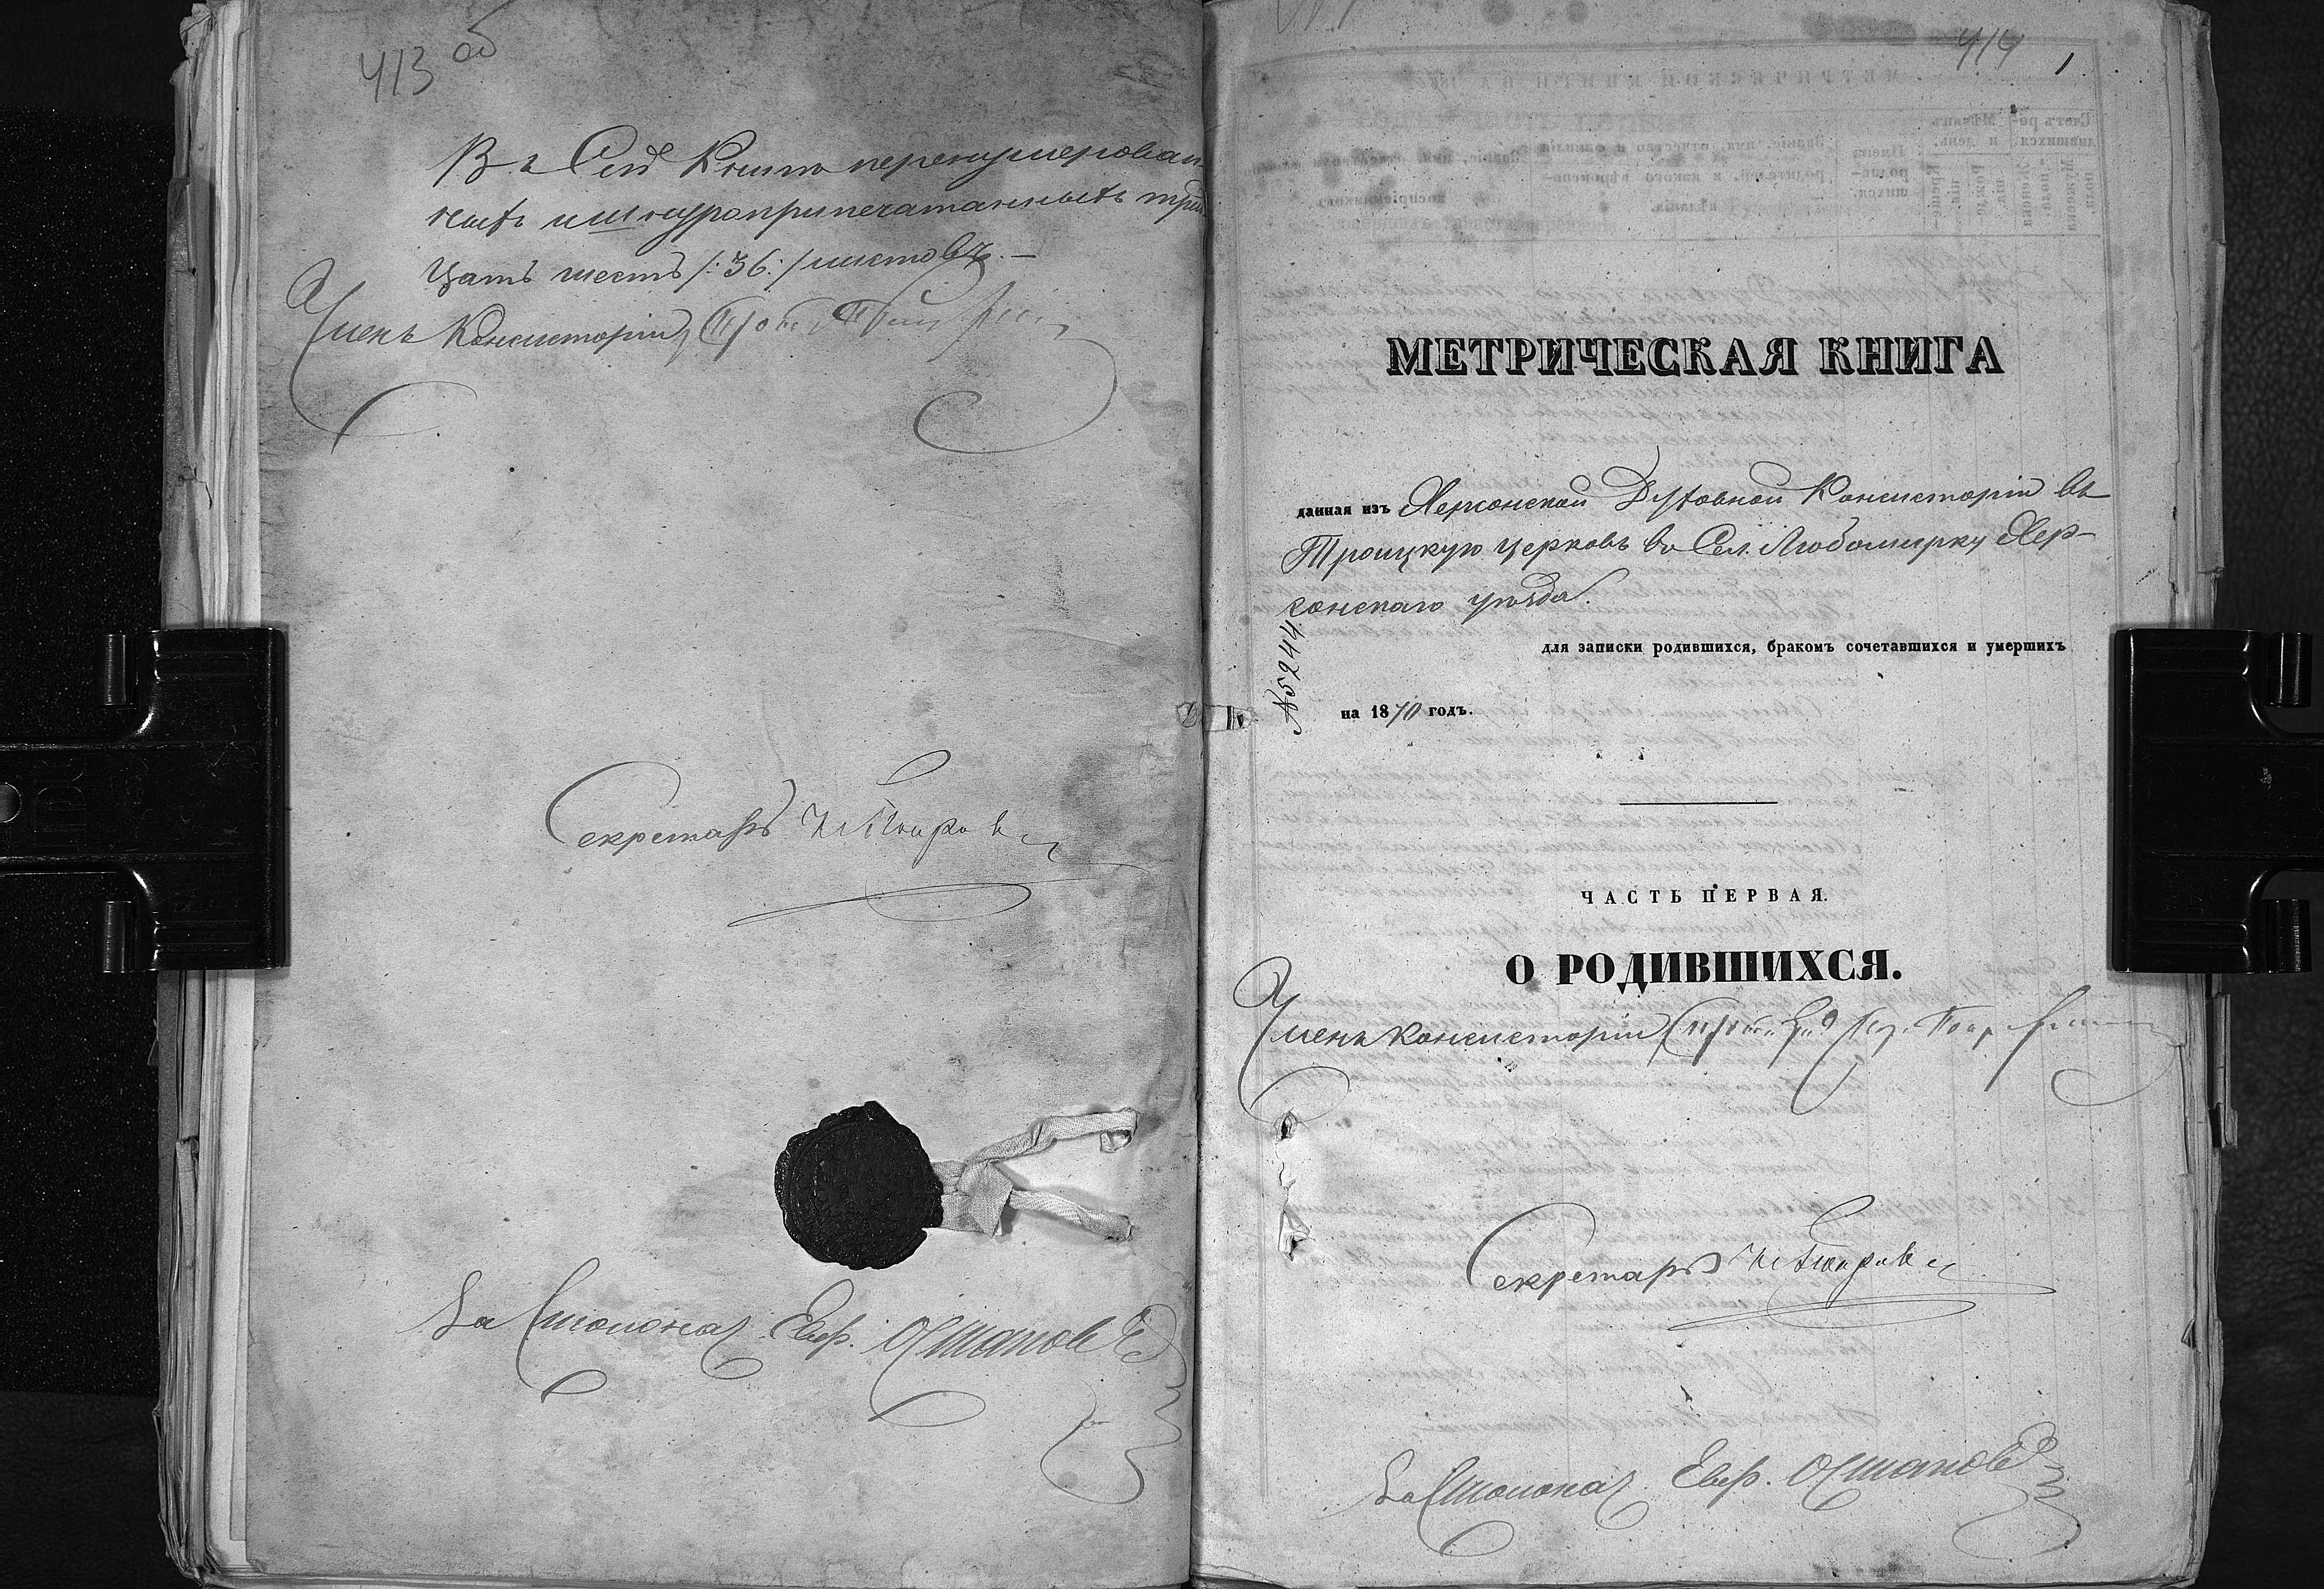 413 об
Въ Сей Книгѣ перенумерован-
ныхъ и шнуроприпечатанныхъ трид-
цать шесть /:36:/ листовъ.—
Членъ Консисторіи, Прот.
Секретарь
За Столонач. Евф. Остапов
414
1
МЕТРИЧЕСКАЯ КНИГА
данная изъ Херсонской Духовной Консисторіи въ
Троицкую церковь во Сел. Любомирку Хер-
сонскаго уѣзда.
для записки родившихся, бракомъ сочетавшихся и умершихъ
№5244
на 1870 годъ.
ЧАСТЬ ПЕРВАЯ.
О РОДИВШИХСЯ.
Членъ Консисторіи, Прот.
Секретарь
За Столонач. Евф. Остапов